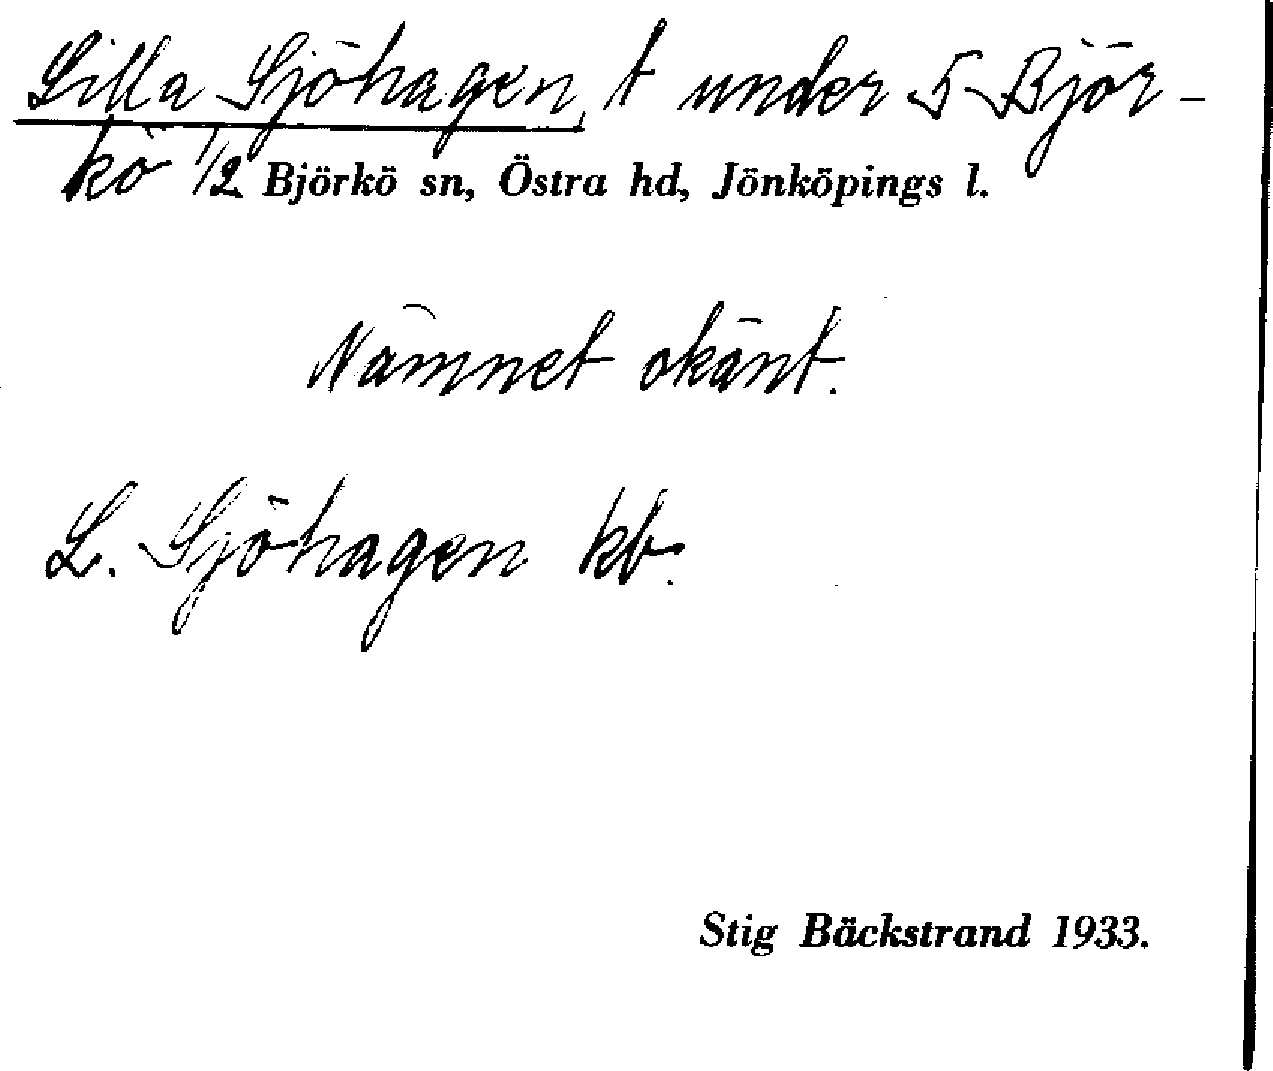 Lilla Sjöhagen, t under 5 Björ-
kö 1/2 Björkö sn, Östra hd, Jönköpings l.
Namnet okänt.
L. Sjöhagen kb.
Stig Bäckstrand 1933.